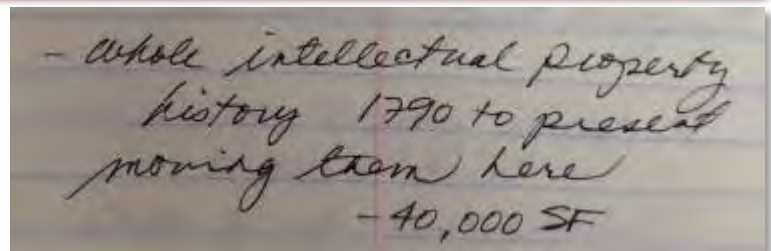 - whole intellectual property
history 1790 to present
moving them here
- 40,000 SF